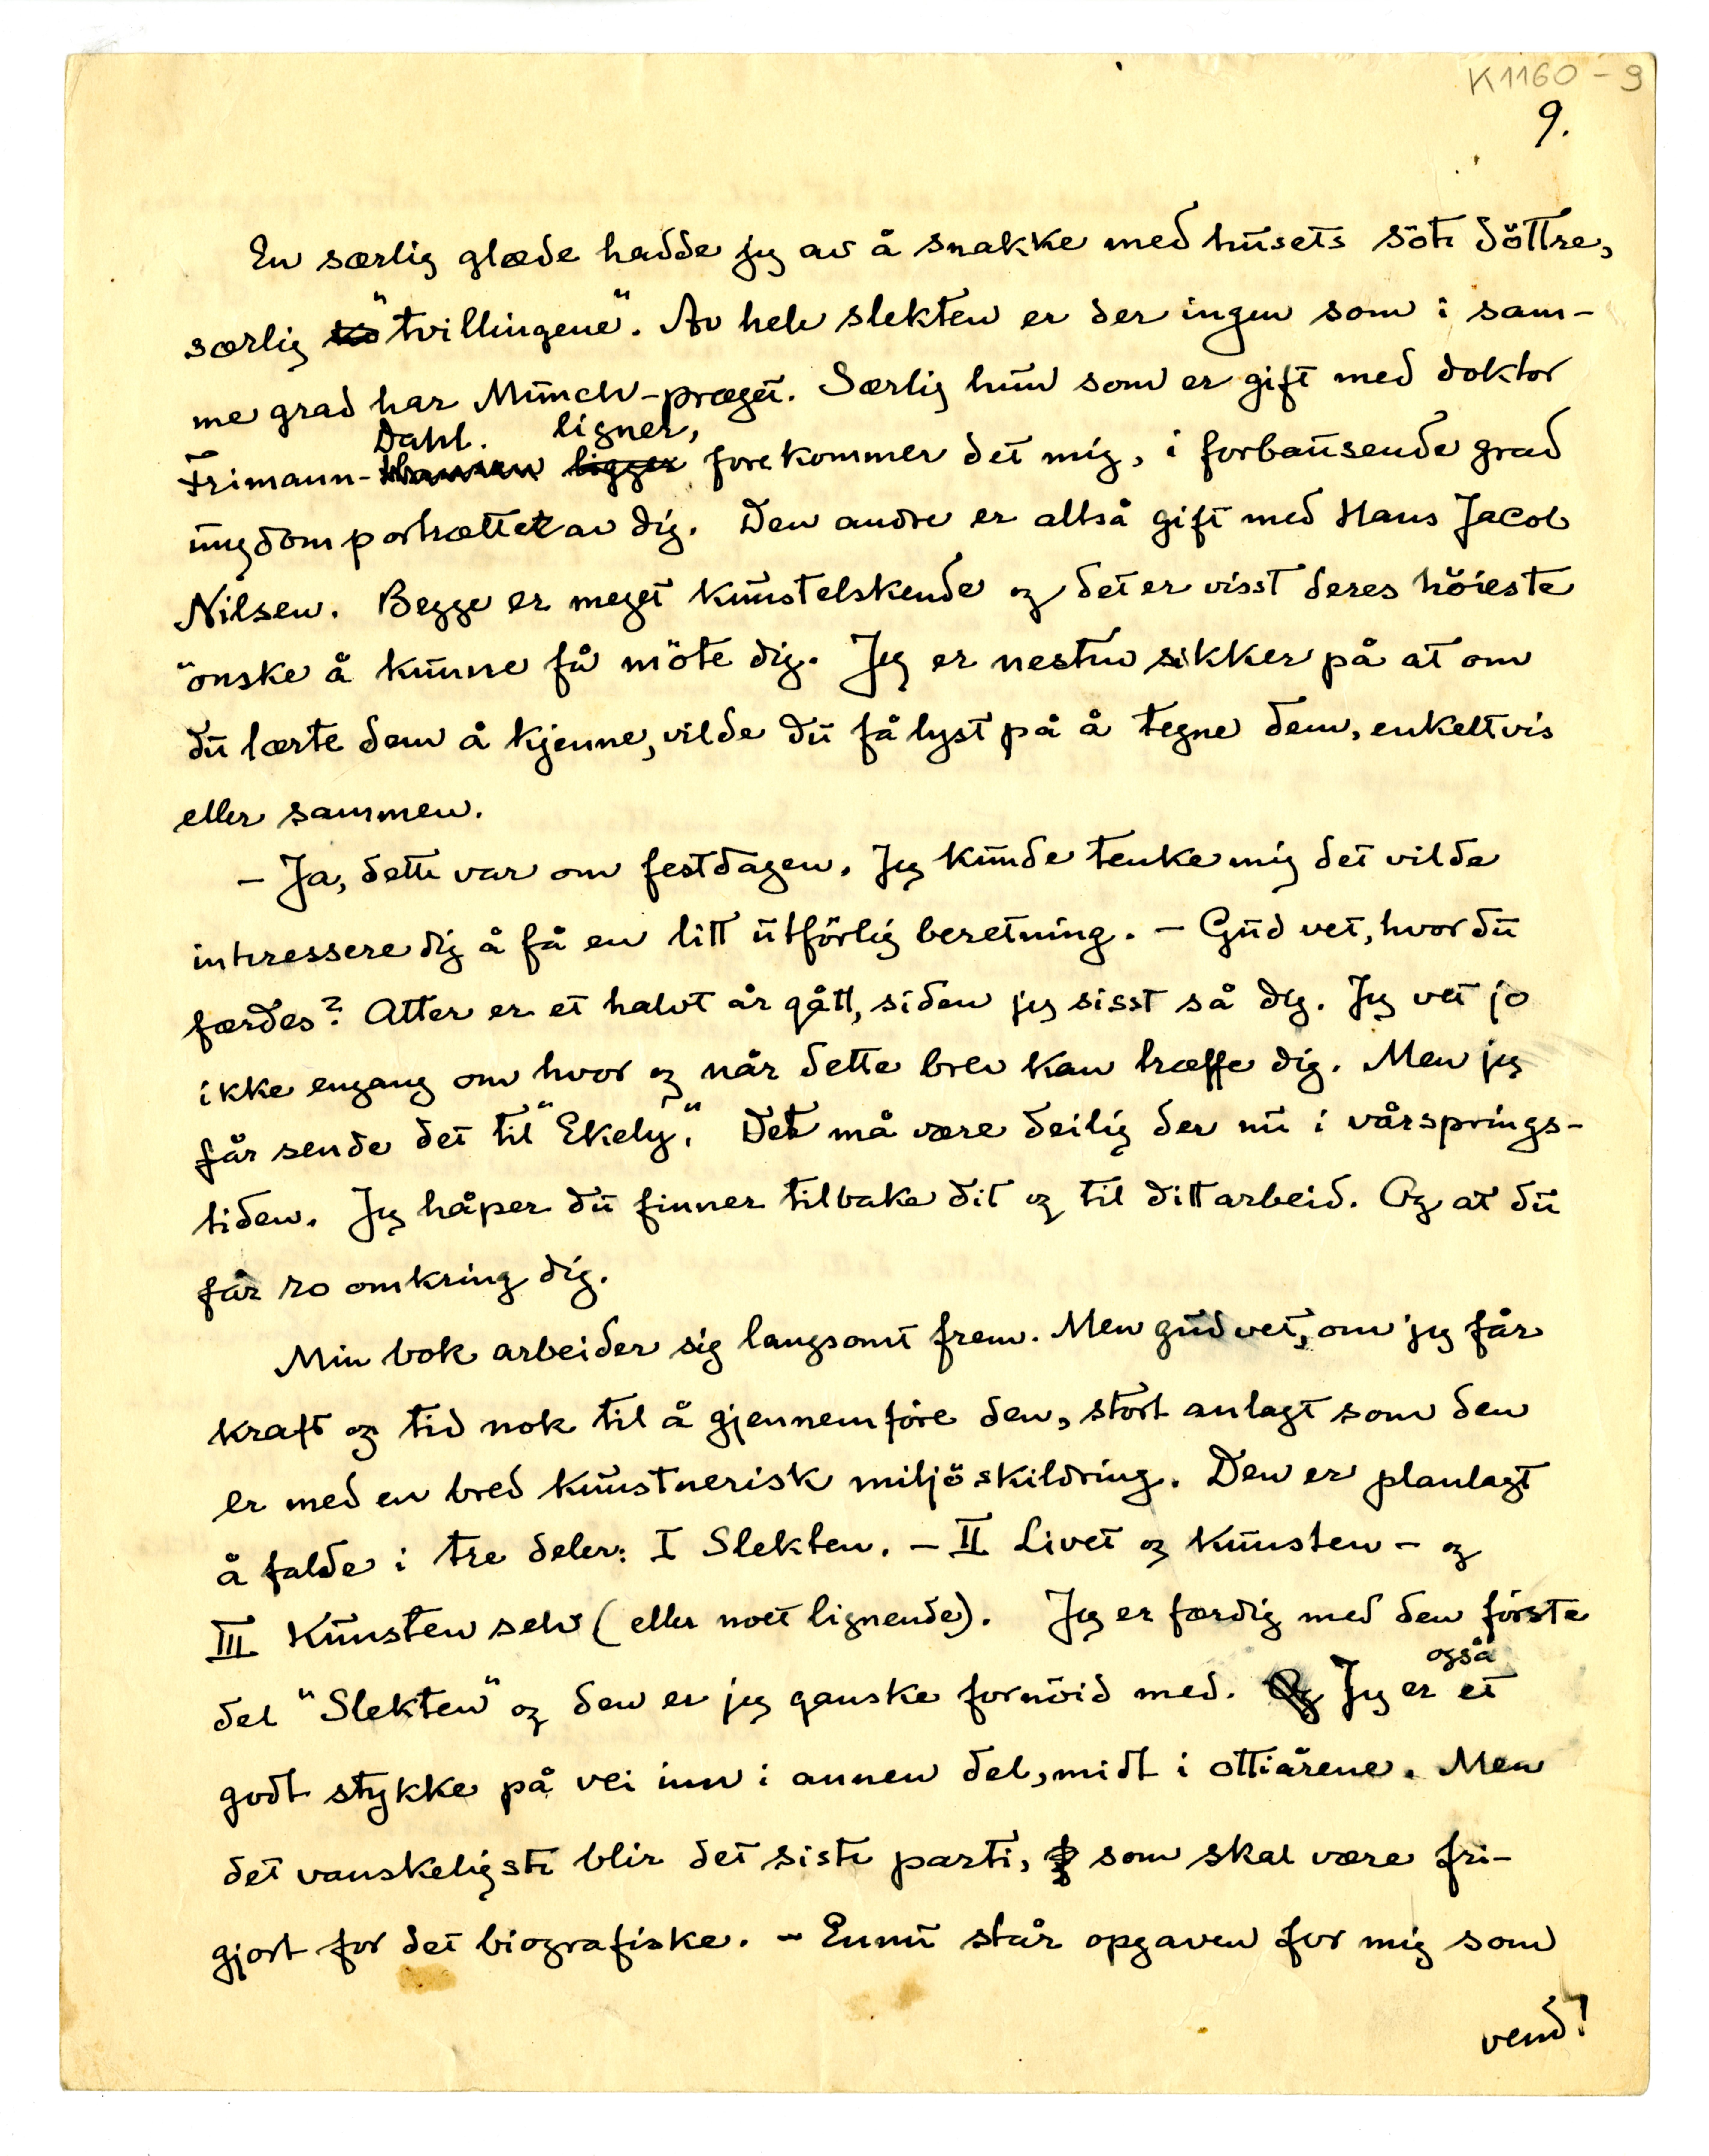 K1160-9
9.
En særlig glæde hadde jeg av å snakke med husets söte döttre,
særlig "tvillingene". Av hele slekten er der ingen som i sam-
me grad har Munch-præget. Særlig hun som er gift med doktor
Dahl. ligner,
Frimann-Hansen ligger forekommer det mig, i forbausende grad
ungdomportrættet av dig. Den andre er altså gift med Hans Jacob
Nilsen. Begge er meget kunstelskende og det er visst deres höieste
önske å kunne få möte dig. Jeg er nesten sikker på at om
du lærte dem å kjenne, vilde du få lyst på å tegne dem, enkeltvis
eller sammen.
- Ja, dette var om festdagen. Jeg kunde tenke mig det vilde
interessere dig å få en litt utförlig beretning. - Gud vet, hvor du
færdes? Atter er et halvt år gått, siden jeg sisst så dig. Jeg vet jo
ikke engang om hvor og når dette brev kan træffe dig. Men jeg
får sende det til "Ekely." Det må være deilig der nu i vårsprings-
tiden. Jeg håper du finner tilbake dit og til ditt arbeid. Og at du
får ro omkring dig.
Min bok arbeider sig langsomt frem. Men gud vet, om jeg får
kraft og tid nok til å gjennemföre den, stort anlagt som den
er med en bred kunstnerisk miljöskildring. Den er planlagt
å falde i tre deler: I Slekten. - II Livet og kunsten - og
III Kunsten selv (eller noet lignende). Jeg er færdig med den förste
også
del "Slekten" og den er jeg ganske fornöid med. Og Jeg er et
godt stykke på vei inn i annen del, midt i ottiårene. Men
det vanskeligste blir det siste parti, som skal være fri-
gjort for det biografiske. - Ennu står opgaven for mig som
vend!